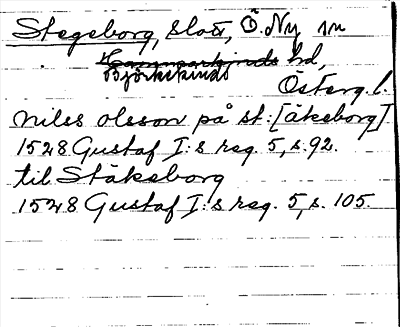 Stegeborg, slott, Ö. Ny sn
Hammarkinds hd,
Björkekinds
Österg. l.
nilss olsson på st: [äkeborg]
1528 Gustaf I:s reg. 5, s. 92.
til Stäkeborg
1528 Gustaf I:s reg. 5, s. 105.